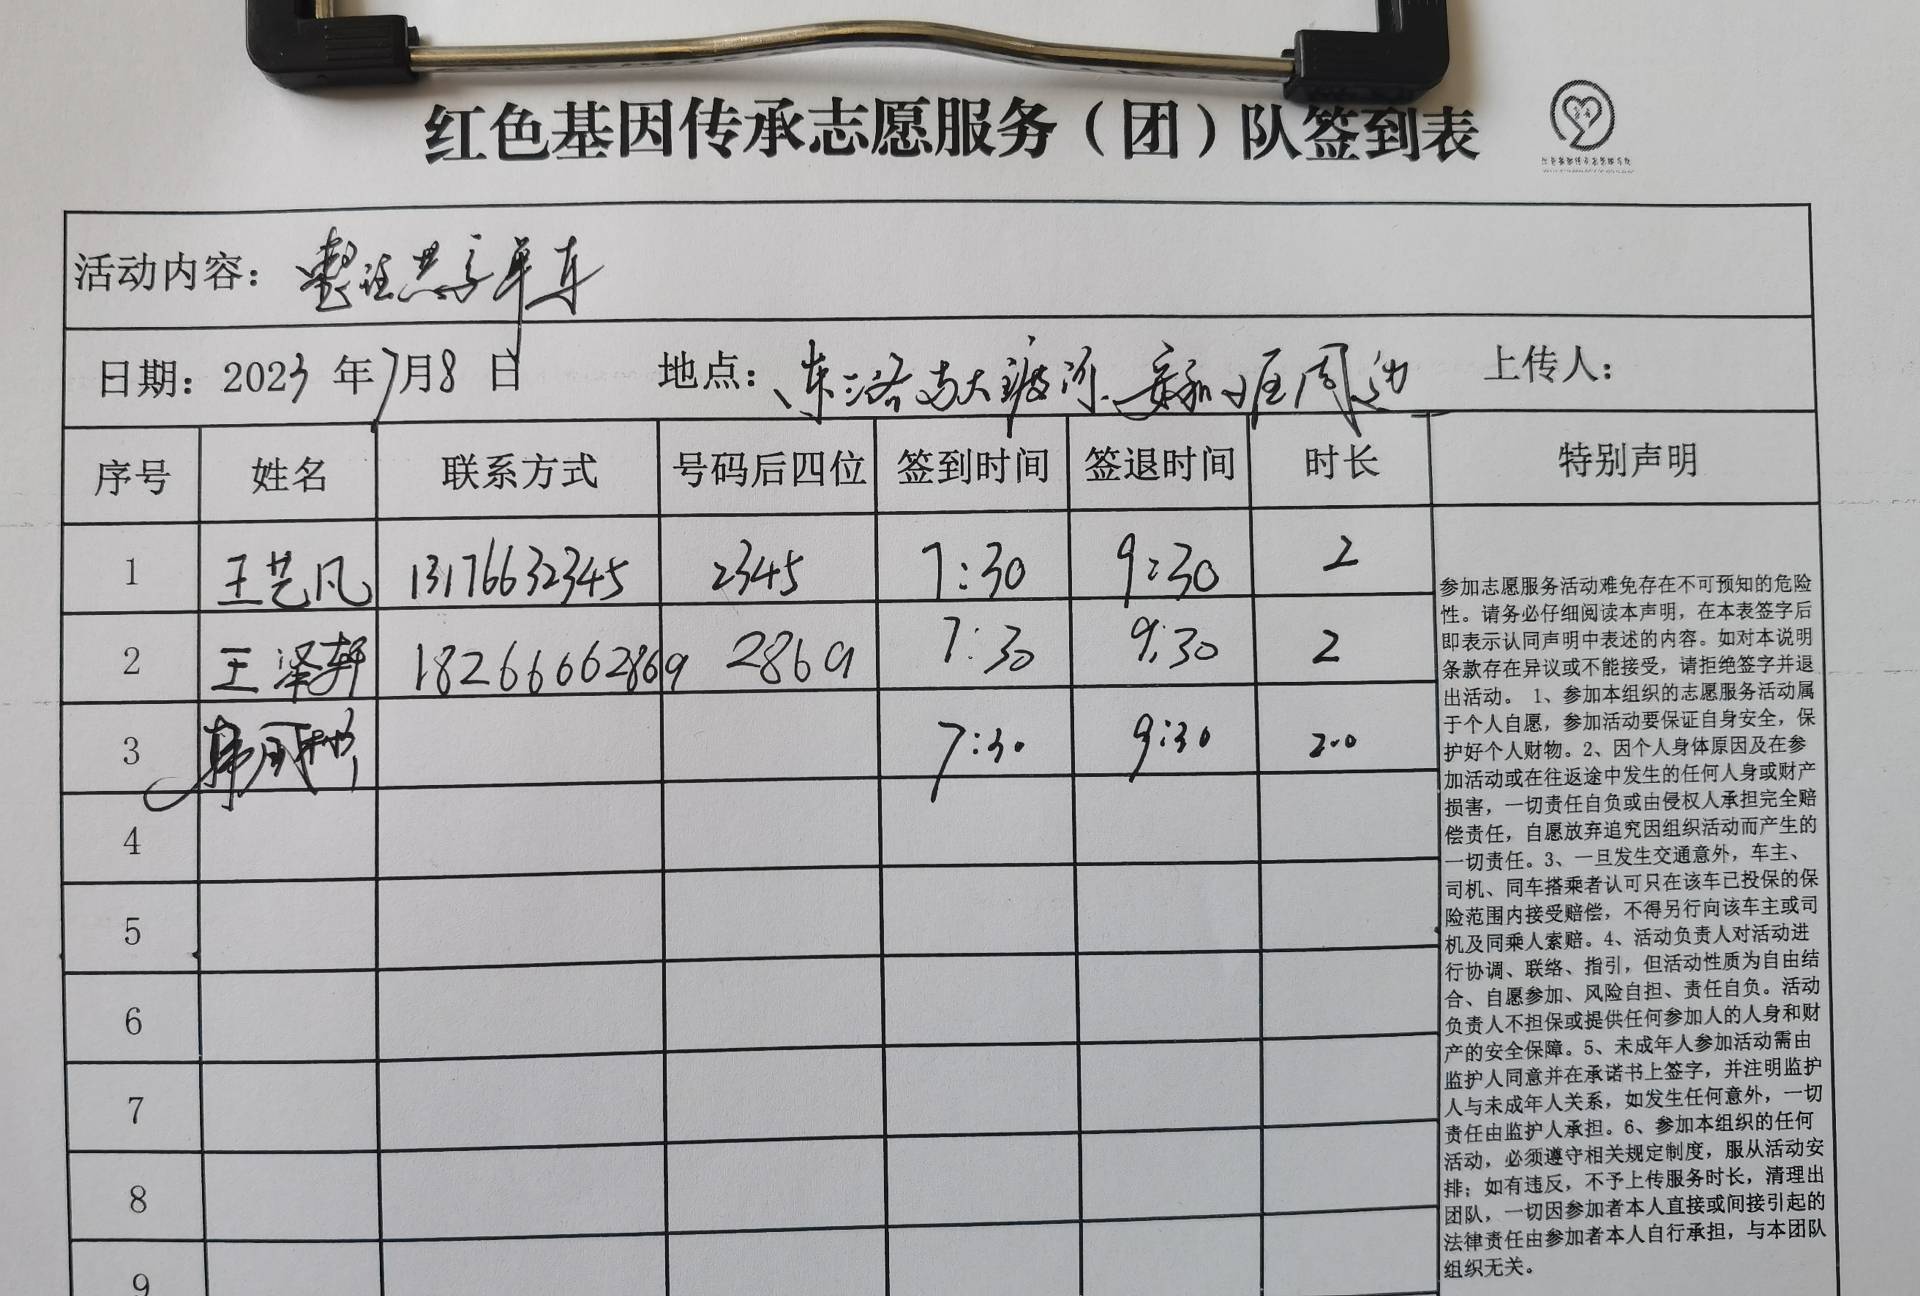 红色基因传承志愿服务（团）队签到表
活动内容：整理共享单车
日期：2023年7月8日 地点： 上传人：
序号 姓名 联系方式 号码后四位 签到时间 签退时间 时长 特别声明
1 王艺凡 13176632345 2345 7:30 9:30 2
2 王泽轩 18266662869 2869 7:30 9:30 2
3 7:30 9:30 2.0
4
5
6
7
8
9
参加志愿服务活动难免存在不可预知的危险
性。请务必仔细阅读本声明，在本表签字后
即表示认同声明中表述的内容。如对本说明
条款存在异议或不能接受，请拒绝签字并退
出活动。 1、参加本组织的志愿服务活动属
于个人自愿，参加活动要保证自身安全，保
护好个人财物。2、因个人身体原因及在参
加活动或在往返途中发生的任何人身或财产
损害，一切责任自负或由侵权人承担完全赔
偿责任，自愿放弃追究因组织活动而产生的
一切责任。3、一旦发生交通意外，车主、
司机、同车搭乘者认可只在该车已投保的保
险范围内接受赔偿，不得另行向该车主或司
机及同乘人索赔。4、活动负责人对活动进
行协调、联络、指引，但活动性质为自由结
合、自愿参加、风险自担、责任自负。活动
负责人不担保或提供任何参加人的人身和财
产的安全保障。5、未成年人参加活动需由
监护人同意并在承诺书上签字，并注明监护
人与未成年人关系，如发生任何意外，一切
责任由监护人承担。6、参加本组织的任何
活动，必须遵守相关规定制度，服从活动安
排；如有违反，不予上传服务时长，清理出
团队，一切因参加者本人直接或间接引起的
法律责任由参加者本人自行承担，与本团队
组织无关。